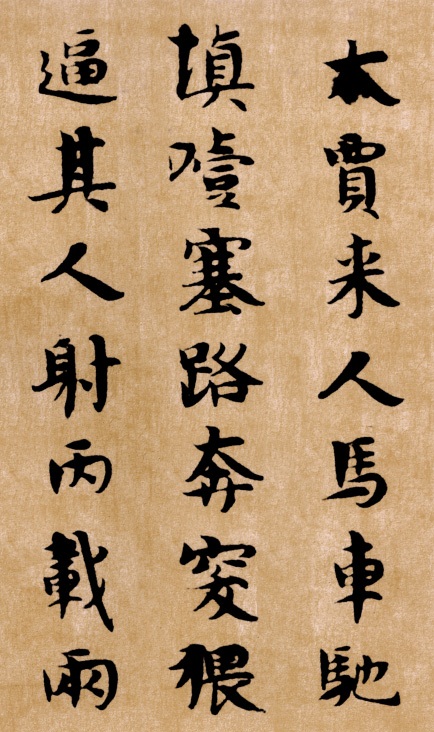 太賈来人馬車馳
填噎塞路奔突猥
逼其人射丙載兩